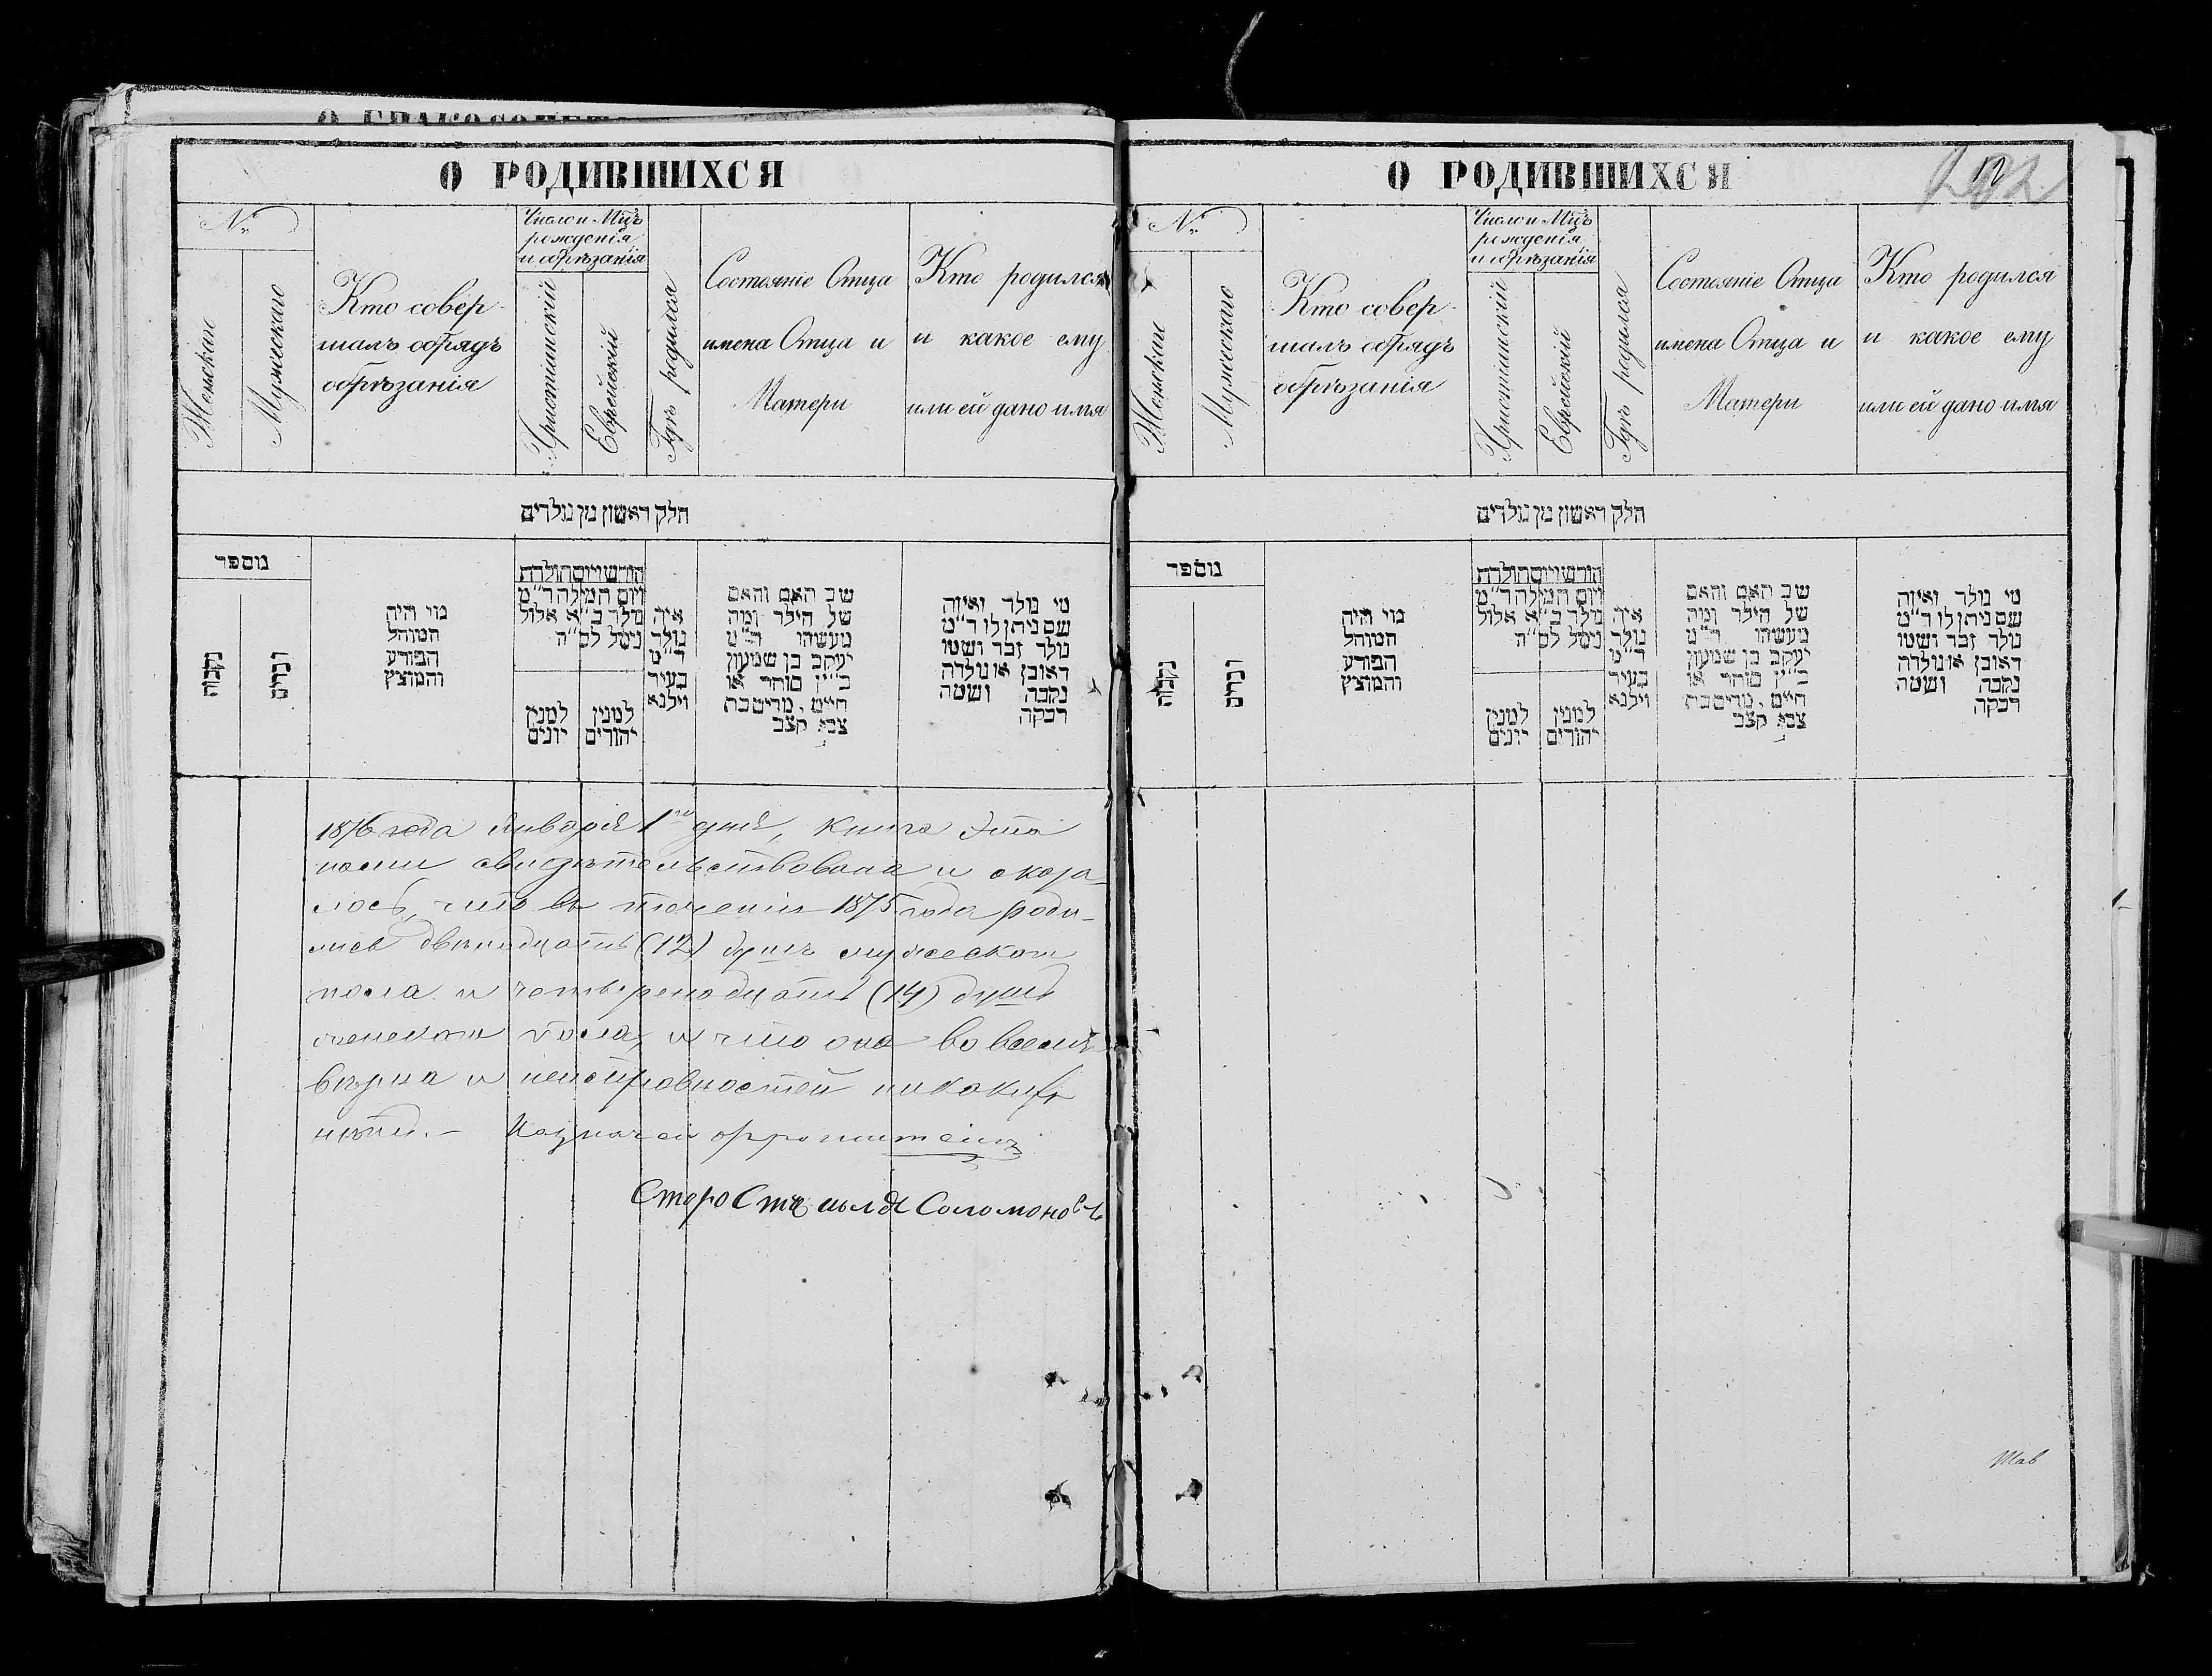 О РОДИВШИХСЯ
№
Женскаго
Мужескаго
Кто совер-
шалъ обрядъ
обрѣзанія
Число и Мцъ
рожденія
и обрѣзанія
Христіанскій
Еврейскій
Гдѣ родился
Состояніе Отца
имена Отца и
Матери
Кто родился
и какое ему
или ей дано имя
חלק ראשון מן נולדים
מספר
נקבות
זכרים
מי היה
המוהל
הפורע
והמוצץ
חודש ויום תולדת
ויום המילה ד״מ
נולד ב״א אלול
נימל לס״ה
למנין
יונים
למנין
יהודים
איה
נולד
ד״מ
בעיר
וילנא
שם האב והאם
של הילד ומה
מעשהו ד״מ
יעקב בן שמעון
כ״ץ סוחר או
חייט, מרים בת
צבי קצב
מי נולד ואיזה
שם ניתן לו ד״מ
נולד זכר ושמו
ראובן או נולדה
נקבה ושמה
רבקה
1876 года Января 1го дня, книга эта
нами свидѣтельствована и оказа-
лось, что въ теченіи 1875 года роди-
лись двѣнадцать (12) душъ мужескаго
пола и четыренадцать (14) душъ
женскаго пола, и что она во всемъ
вѣрна и неисправностей никакихъ
нѣтъ. – Казначей
Староста Соломоновъ
О РОДИВШИХСЯ
№
Женскаго
Мужескаго
Кто совер-
шалъ обрядъ
обрѣзанія
Число и Мцъ
рожденія
и обрѣзанія
Христіанскій
Еврейскій
Гдѣ родился
Состояніе Отца
имена Отца и
Матери
Кто родился
и какое ему
или ей дано имя
חלק ראשון מן נולדים
מספר
נקבות
זכרים
מי היה
המוהל
הפורע
והמוצץ
חודש ויום תולדת
ויום המילה ד״מ
נולד ב״א אלול
נימל לס״ה
למנין
יונים
למנין
יהודים
איה
נולד
ד״מ
בעיר
וילנא
שם האב והאם
של הילד ומה
מעשהו ד״מ
יעקב בן שמעון
כ״ץ סוחר או
חייט, מרים בת
צבי קצב
מי נולד ואיזה
שם ניתן לו ד״מ
נולד זכר ושמו
ראובן או נולדה
נקבה ושמה
רבקה